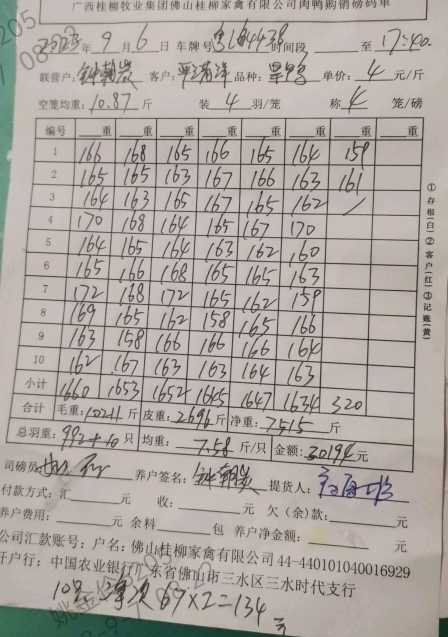 广西桂柳牧业集团佛山桂柳家禽有限公司肉鸭购销磅码单
2023年9月6日 车牌号 时间段 至17:40
联营户: 客户: 品种: 单价:4元/斤
空笼均重:10.87斤 装4羽/笼 称4笼/磅
编号 重 重 重 重 重 重 重 重
1 166 168 165 166 165 164 159
2 165 165 163 167 166 163 161
3 164 163 165 167 165 162 /
4 170 168 164 165 167 170
5 164 165 164 163 162 160
6 165 166 168 165 165 163
7 172 168 172 165 162 159
8 169 165 162 158 165 166
9 163 158 166 166 166 164
10 162 167 163 163 164 163
小计 1660 1653 1652 1645 1647 1634 320
合计 毛重:10211斤 皮重:2696斤 净重:7515斤
总羽重:992+10只 均重:7.58斤/只 金额:30194元
司磅员: 养户签名: 提货人:
付款方式:汇 元 收: 元 欠(余)款: 元
养户费用: 元 余料 包 养户净金额: 元
公司汇款账号:户名:佛山桂柳家禽有限公司 44-440101040016929
开户行:中国农业银行广东省佛山市三水区三水时代支行
67×2=134
①存根(白)②客户(红)③记账(黄)